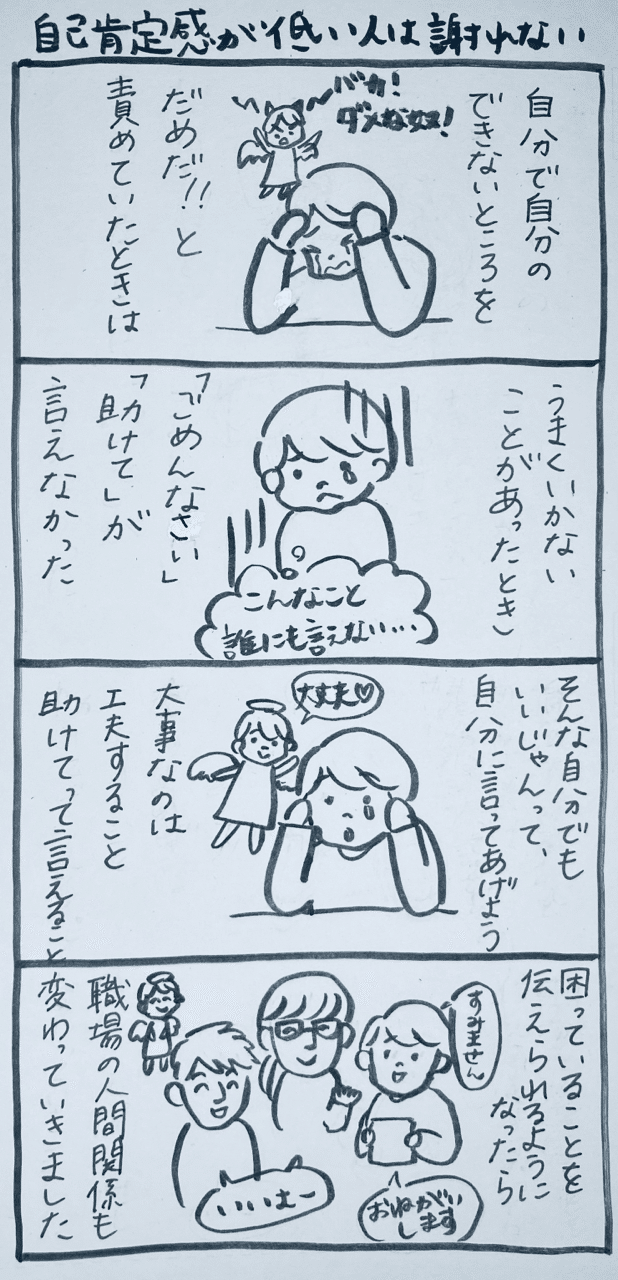 自己肯定感が低い人は謝れない
自分で自分の
できないところを
バカ!
ダメな奴!
だめだ!!と
責めていたどきは
うまくいかない
ことがあったとき、
「ごめんなさい」
「助けて」が
言えなかった
こんなこと
誰にも言えない…
そんな自分でも
いいじゃんって、
自分に言ってあげよう
大丈夫♡
大事なのは
工夫すること
助けてって言えること
困っていることを
伝えられるように
なったら
すみません
おねがい
します
いいよー
職場の人間関係も
変わっていきました